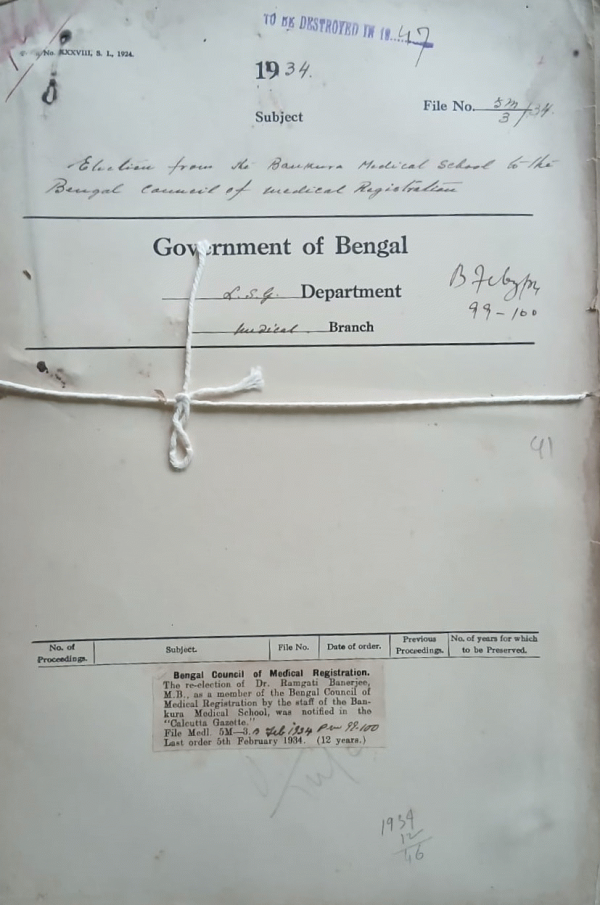 TO BE DESTROYED IN 19....47
No. XXXVIII, S. I., 1924.
1934.
File No. 5M/3/34.
Subject
Election from the Bankura Medical School to the
Bengal Council of Medical Registration
Government of Bengal
L.S.G. Department
Medical Branch
B
99-100
41
No. of Proceedings.
Subject.
File No.
Date of order.
Previous Proceedings.
No. of years for which to be Preserved.
Bengal Council of Medical Registration.
The re-election of Dr. Ramgati Banerjee,
M.B., as a member of the Bengal Council of
Medical Registration by the staff of the Ban-
kura Medical School, was notified in the
"Calcutta Gazette."
File Medl. 5M—3. B Feb 1934 99-100
Last order 5th February 1934. (12 years.)
1934
12
46